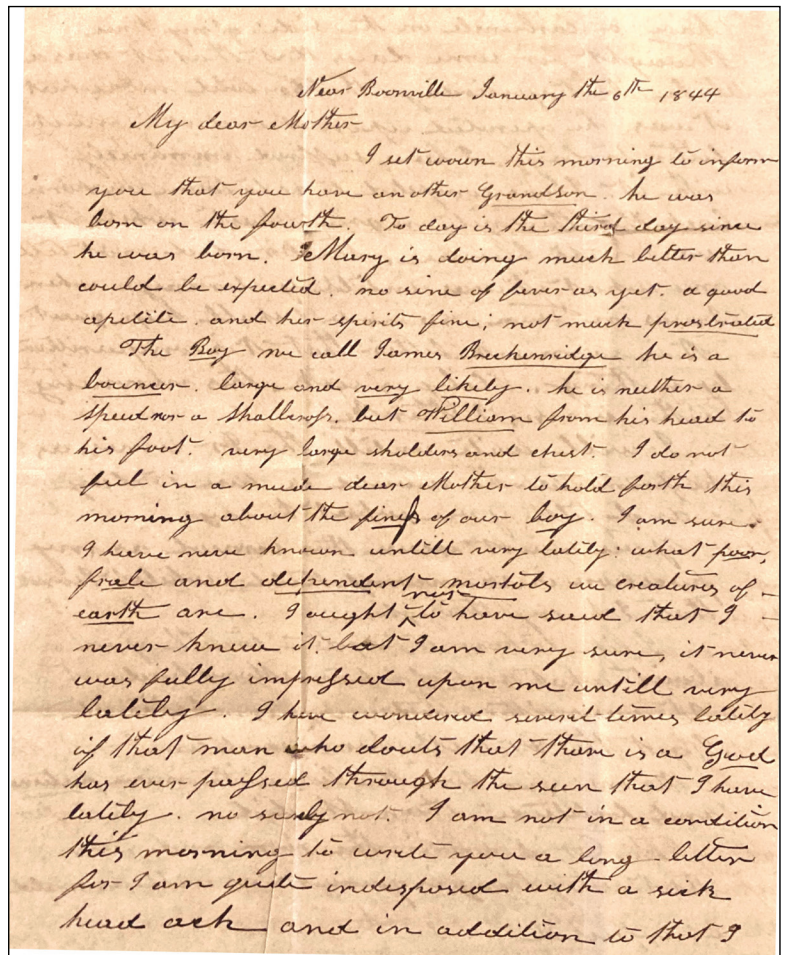 Near Boonville January the 6th 1844
My dear Mother
I set wown this morning to inform
you that you have another Grandson. he was
born on the fourth. To day is the third day since
he was born. Mary is doing much better than
could be expected. no sine of fever as yet. a good
apetite. and her spirits fine; not much prostrated
The Boy we call James Breckenridge he is a
bouncer. large and very likely. he is neither a
Speed nor a Shallcross. but William from his head to
his foot. very large sholders and chest. I do not
feel in a mude dear Mother to hold forth this
morning about the fine of our boy. I am sure.
I have neve known untill very latily: what poor,
frale and dependent mortals we creatures of
earth are. I ought not to have said that I
never knew it. but I am very sure, it never
was fully impressed upon me untill very
latily. I have wondered severil times latily
if that man who douts that thare is a God
has ever passed through the seen that I have
latily. no surely not. I am not in a condition
this morning to write you a long letter
for I am quite indisposed with a sick
head ack and in addition to that I